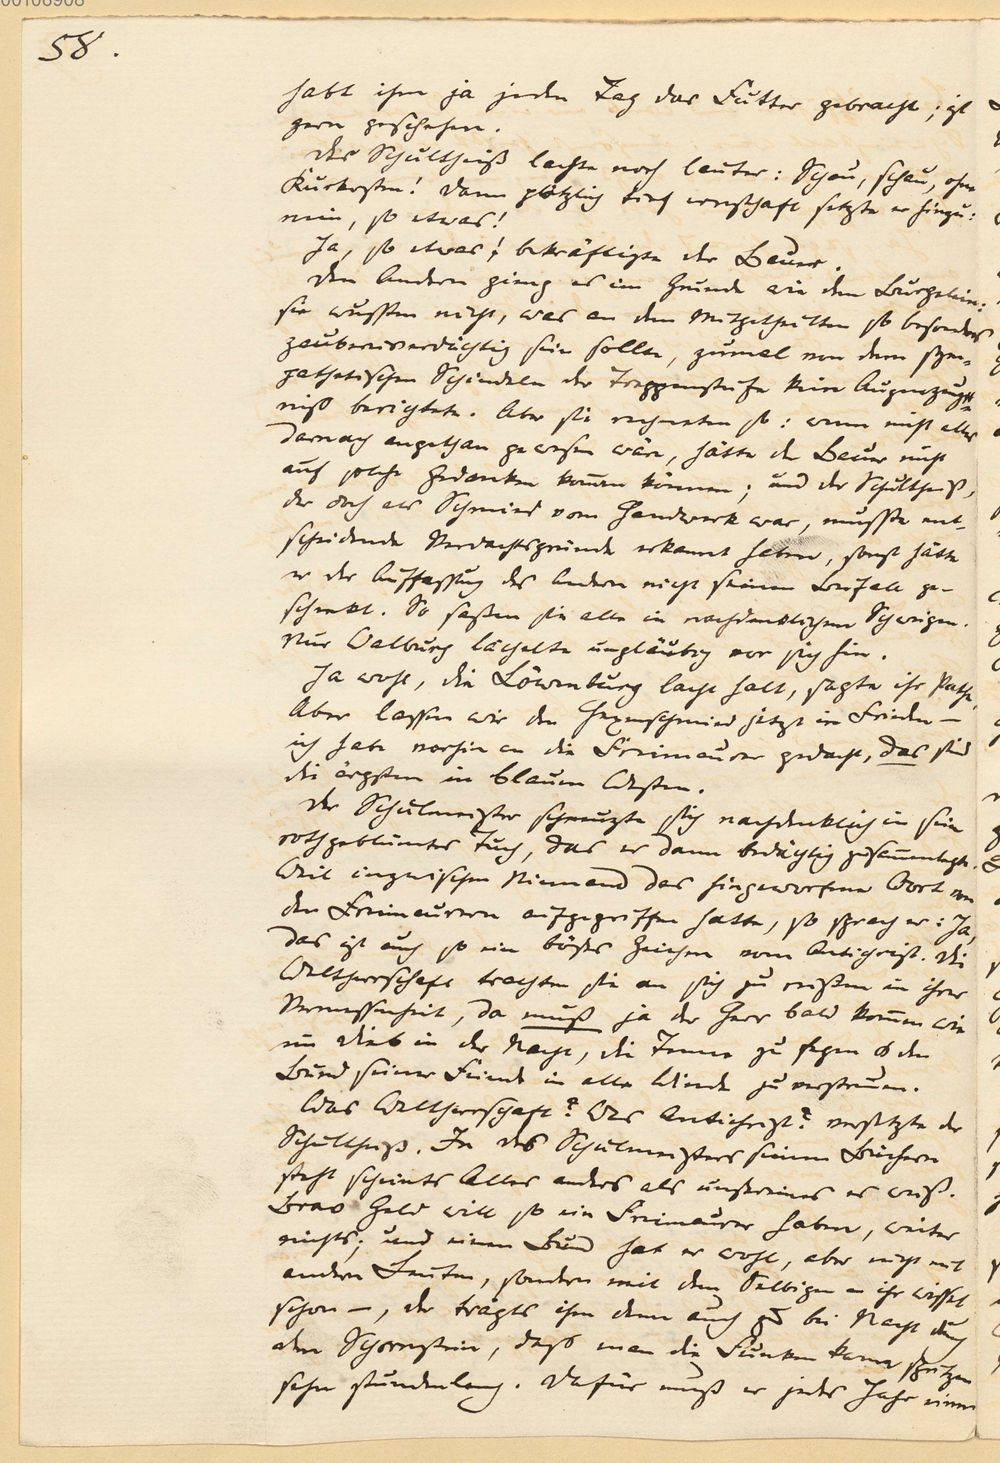 00106908
58.
habt ihm ja jeden Tag das Futter gebracht; ist
gern geschehen.
Der Schultheiß lachte noch lauter: Schau, schau, ohne
Kurkosten! Dann plötzlich tief ernsthaft setzte er hinzu:
nein, so etwas!
Ja, so etwas! bekräftigte der Bauer.
Den Andern gieng es im Grunde wie dem
sie wussten nicht, was an dem Mitgetheilten so besonders
zaubereiverdächtig sein sollte, zumal von dem sym-
pathetischen Schindeln der Treppenstufe kein Augenzeug-
niß berichtete. Aber sie rechneten so: wenn nicht alles
darnach angethan gewesen wäre, hätte der Bauer nicht
auf solche Gedanken kommen können; und der Schultheiß,
der doch als Schmied vom Handwerk war, musste ent-
scheidende Verdachtsgründe erkannt haben, sonst hätte
er der Auffassung des Andern nicht seinen Beifall ge-
schenkt. So saßen sie alle in nachdenklichem Schweigen.
Nur Walburg lächelte ungläubig vor sich hin.
Ja wohl, die Löwenburg lacht halt, sagte ihr Pathe,
Aber lassen wir den Hexenschmied jetzt in Frieden —
ich habe vorhin an die Freimaurer gedacht, das sind
die ärgsten in blauen Westen.
Der Schulmeister schneuzte sich nachdenklich in sein
rothgeblümtes Tuch, das er dann bedächtig zusammenlegte.
Weil inzwischen Niemand das hingeworfene Wort von
den Freimaurern aufgegriffen hatte, so sprach er: Ja,
das ist auch so ein böses Zeichen vom Antichrist. Die
Weltherrschaft trachten sie an sich zu reißen in ihrer
Vermessenheit, da muß ja der Herr bald kommen wie
ein Dieb in der Nacht, die Tenne zu fegen & den
Bund seiner Feinde in alle Winde zu verstreuen.
Was Weltherrschaft? Was Antichrist? versetzte der
Schultheiß. In des Schulmeisters seinen Büchern
steht scheints Alles anders als unsereines es weiß.
Brav Geld will so ein Freimaurer haben, weiter
nichts; und einen Bund hat er wohl, aber nicht mit
andern Leuten, sondern mit dem Selbigen – ihr wisset
schon —, der trägts ihm dann auch bei Nacht durch
den Schornstein, daß man die Funken kann spritzen
sehn stundenlang. Dafür muß er jedes Jahr einen